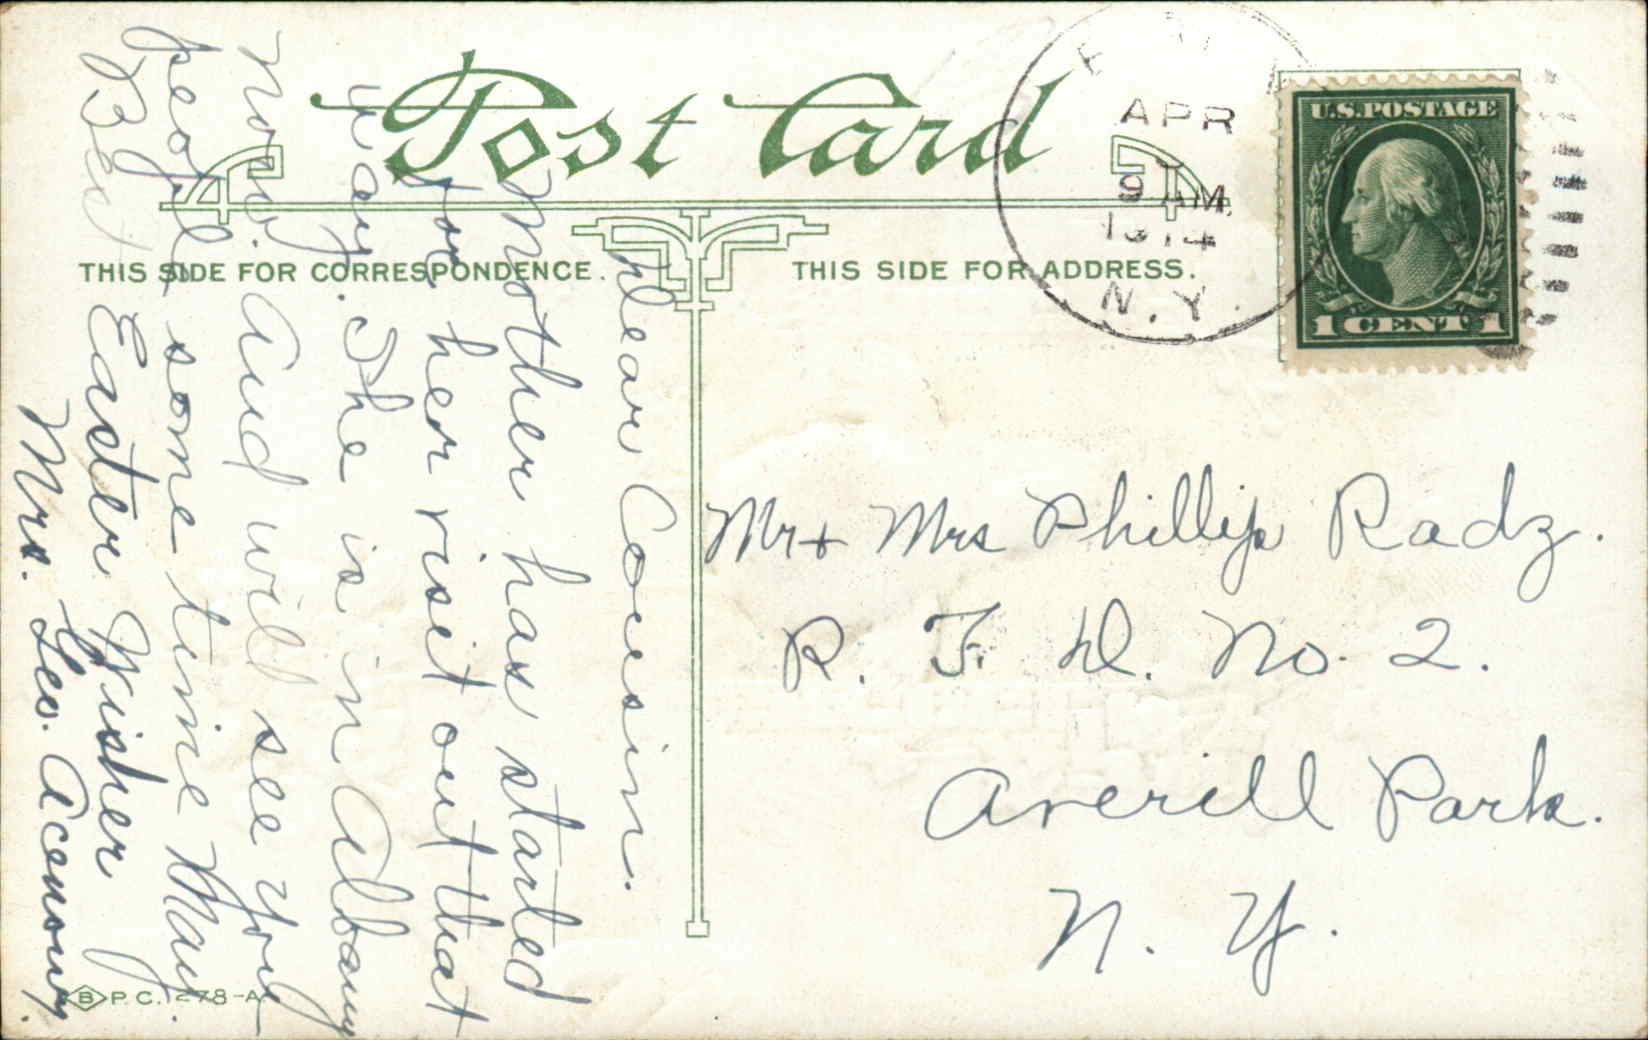 Post Card
THIS SIDE FOR CORRESPONDENCE.
THIS SIDE FOR ADDRESS.
APR
9 AM
1914
N.Y.
U.S. POSTAGE
1 CENT 1
Dear Cousin.
Mother has started
for her visit out that
way. She is in Albany
now. and will see you
people some time May.
Best Easter Wisher
Mrs. Geo.
Mr + Mrs Phillip Radz.
R. F. D. No. 2.
Averill Park.
N. Y.
B P. C. 278-A